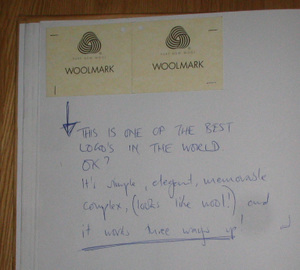 WOOLMARK WOOLMARK
THIS IS ONE OF THE BEST
LOGO'S IN THE WORLD
OK?
It's simple, elegant, memorable
complex, (looks like wool!) and
it works three ways up!